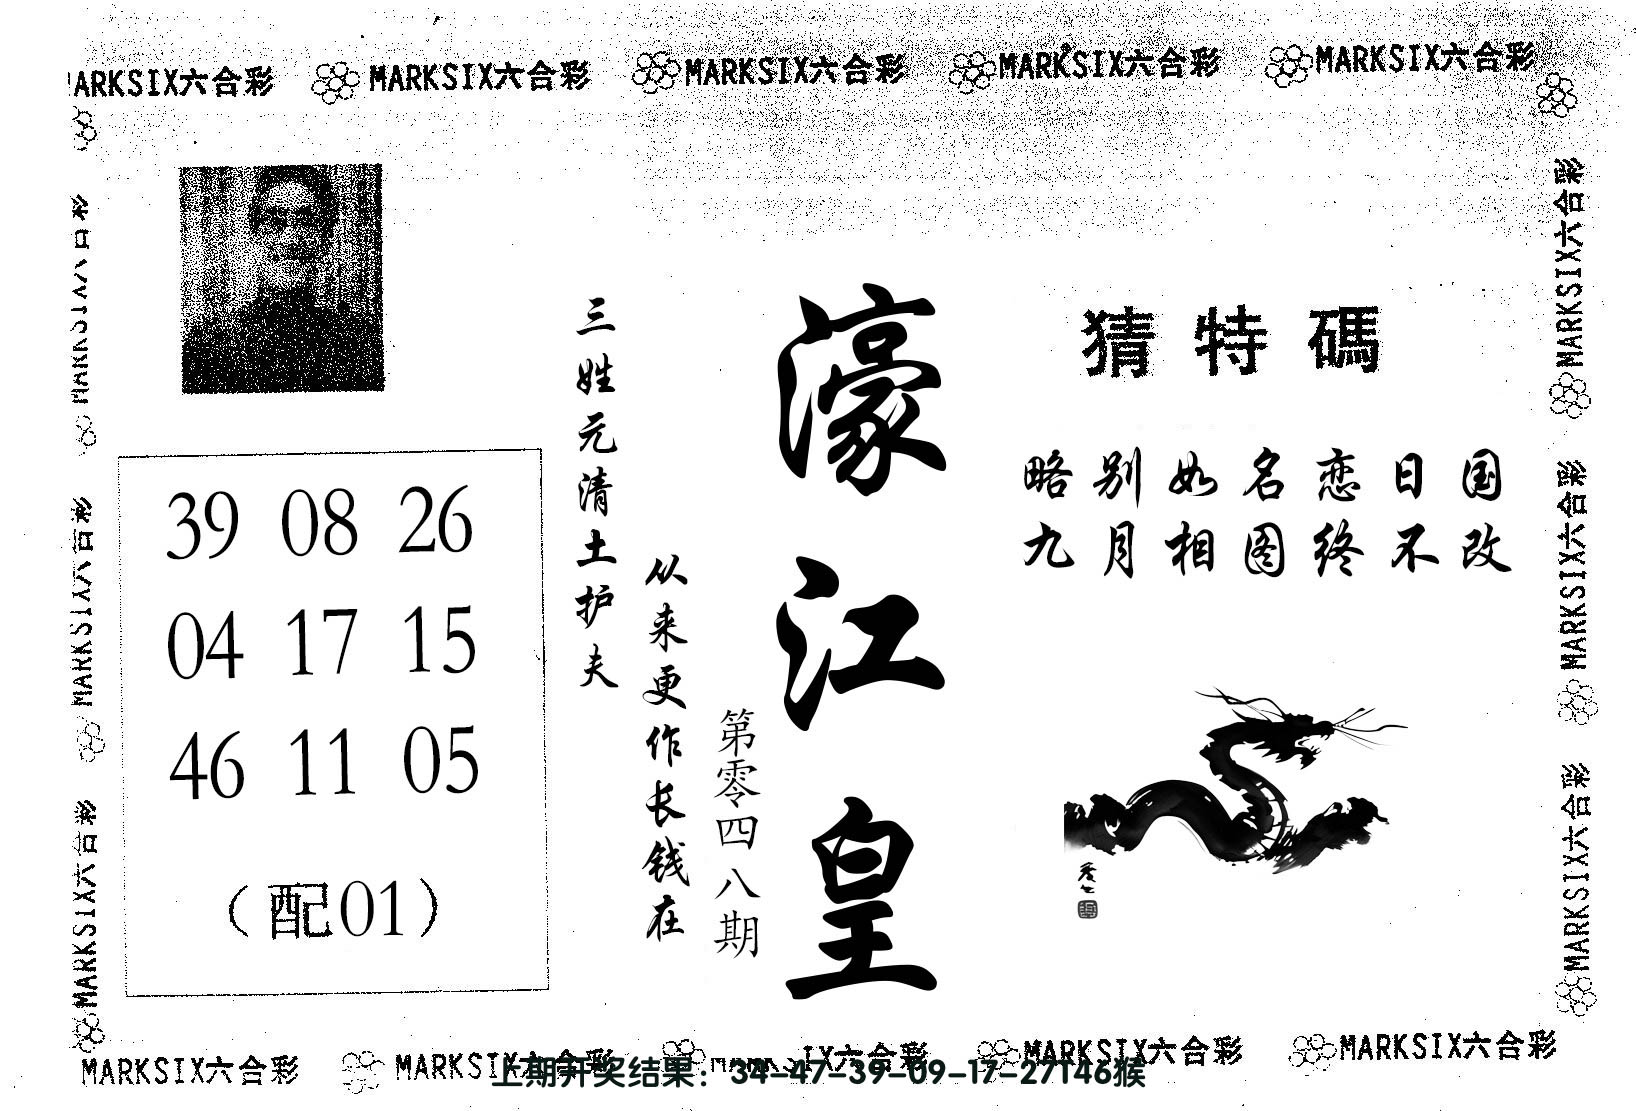 MARKSIX六合彩 MARKSIX六合彩 MARKSIX六合彩 MARKSIX六合彩 MARKSIX六合彩
MARKSIX六合彩
MARKSIX六合彩
MARKSIX六合彩
MARKSIX六合彩
MARKSIX六合彩
MARKSIX六合彩
39 08 26
04 17 15
46 11 05
（配01）
三姓元清土护夫
从来更作长钱在
第零四八期
濠江皇
猜特碼
略别如名恋日国
九月相图终不改
MARKSIX六合彩 MARKSIX六合彩 IX六合彩 MARKSIX六合彩 MARKSIX六合彩
上期开奖结果：34-47-39-09-17-27T46猴